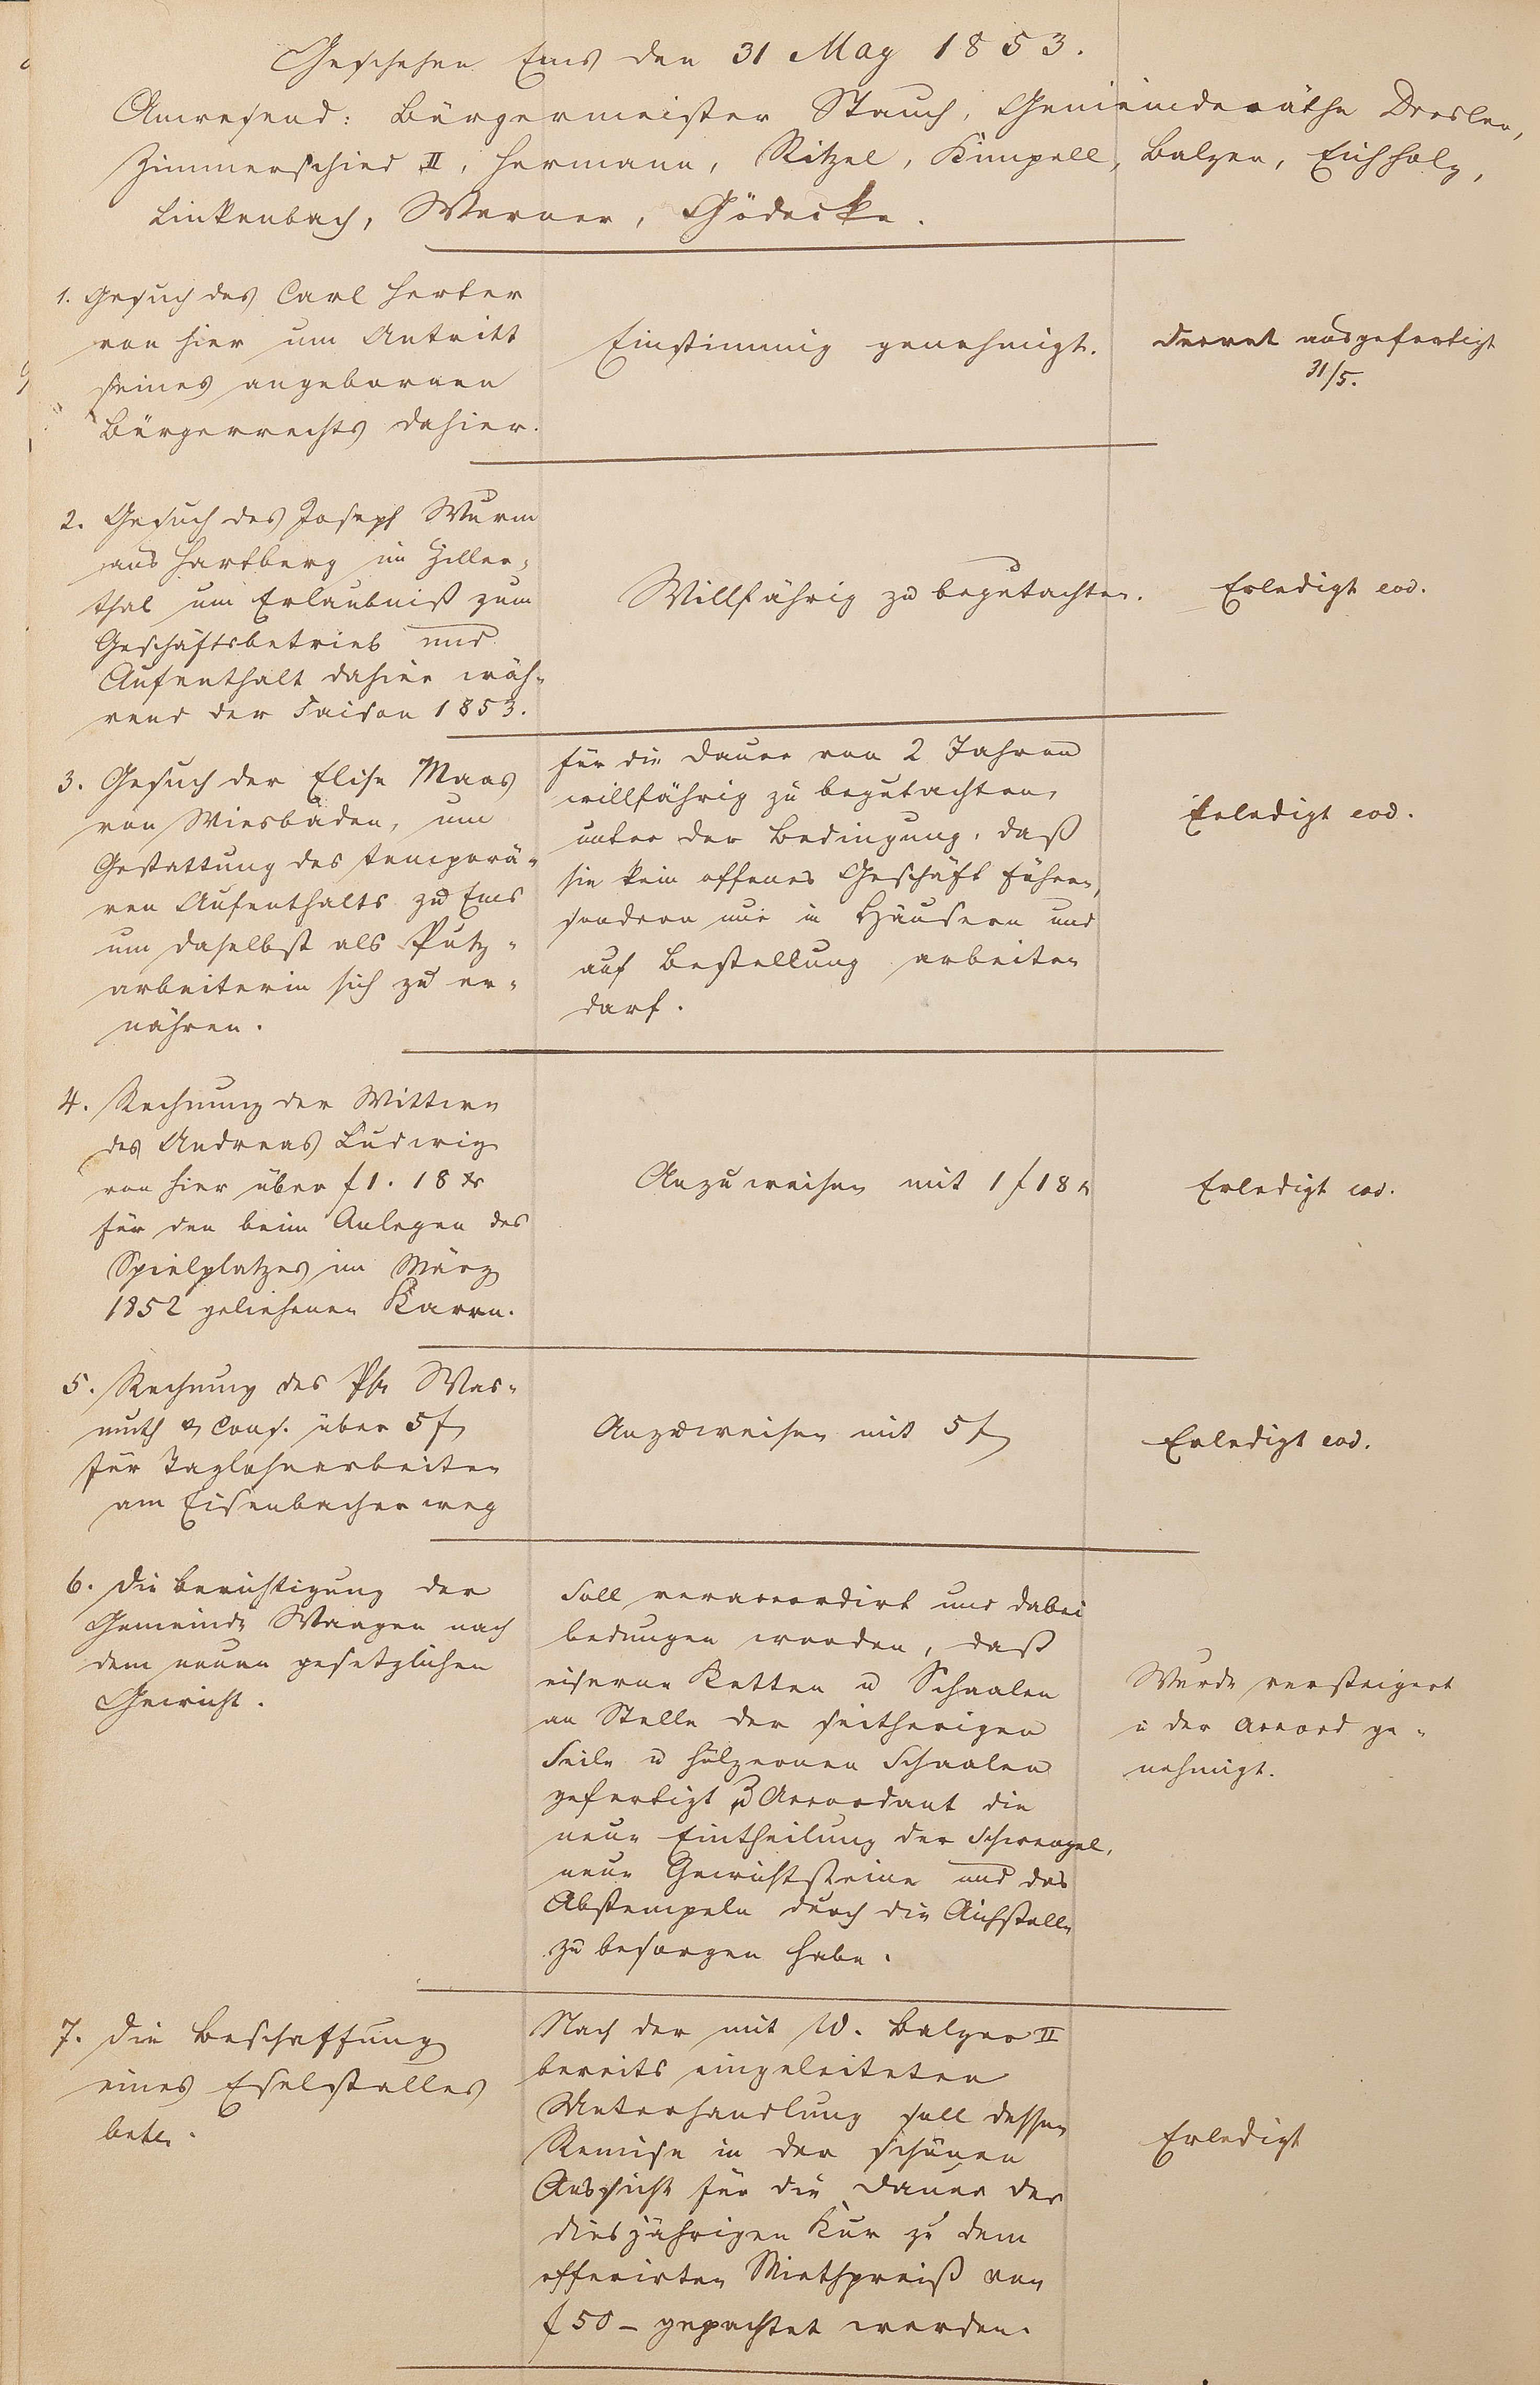 Geschehen Ems den 31 May 1853.
Anwesend: Bürgermeister Stauch, Gemeinderäthe Dresler,
Zimmerschied II, Hermann, Ritzel, Kimpell, Balzer, Eichholz,
Linkenbach, Werner, Gödecke.
1. Gesuch des Carl Herber
von hier um Antritt
seines angebornen
Bürgerrechts dahier.
Einstimmig genehmigt.
Decret ausgefertigt
31/5.
2. Gesuch des Joseph Wurm
aus Hartberg im Ziller-
thal um Erlaubniß zum
Geschäftsbetrieb und
Aufenthalt dahier wäh-
rend der Saison 1853.
Willfährig zu begutachten.
Erledigt eod.
3. Gesuch der Elise Maas
von Wiesbaden, um
Gestattung des temporä-
ren Aufenthalts zu Ems
um daselbst als Putz-
arbeiterin sich zu er-
nähren.
für die Dauer von 2 Jahren
willfährig zu begutachten,
unter der Bedingung, daß
sie kein offenes Geschäft führen,
sondern nur in Häusern und
auf Bestellung arbeiten
darf.
Erledigt eod.
4. Rechnung der Wittwe
des Andreas Ludwig
von hier über f 1. 18 xr
für den beim Anlegen des
Spielplatzes im März
1852 geliehenen Karrn.
Anzuweisen mit 1 f 18 x
Erledigt eod.
5. Rechnung des Ph Was-
muth & Cons. über 5 f
für Taglohnarbeiten
am Eisenbacher weg
Anzuweisen mit 5 f
Erledigt eod.
6. Die Berichtigung der
Gemeinde Waagen nach
dem neuen gesetzlichen
Gewicht.
Soll veraccordirt und dabei
bedungen werden, daß
eiserne Ketten u Schaalen
an Stelle der seitherigen
Seile u hölzernen Schaalen
gefertigt u Accordant die
neue Eintheilung der Schwengel,
neue Gewichtsteine und das
Abstempeln durch die Aichstelle
zu besorgen habe.
Wurde versteigert
u der Accord ge-
nehmigt.
7. Die Beschaffung
eines Eselstalles
betr.
Nach der mit W. Balzer II
bereits eingeleiteten
Unterhandlung soll dessen
Remise in der schönen
Aussicht für die Dauer der
diesjährigen Kur zu dem
offerirten Miethpreiß von
f 50 – gepachtet werden.
Erledigt